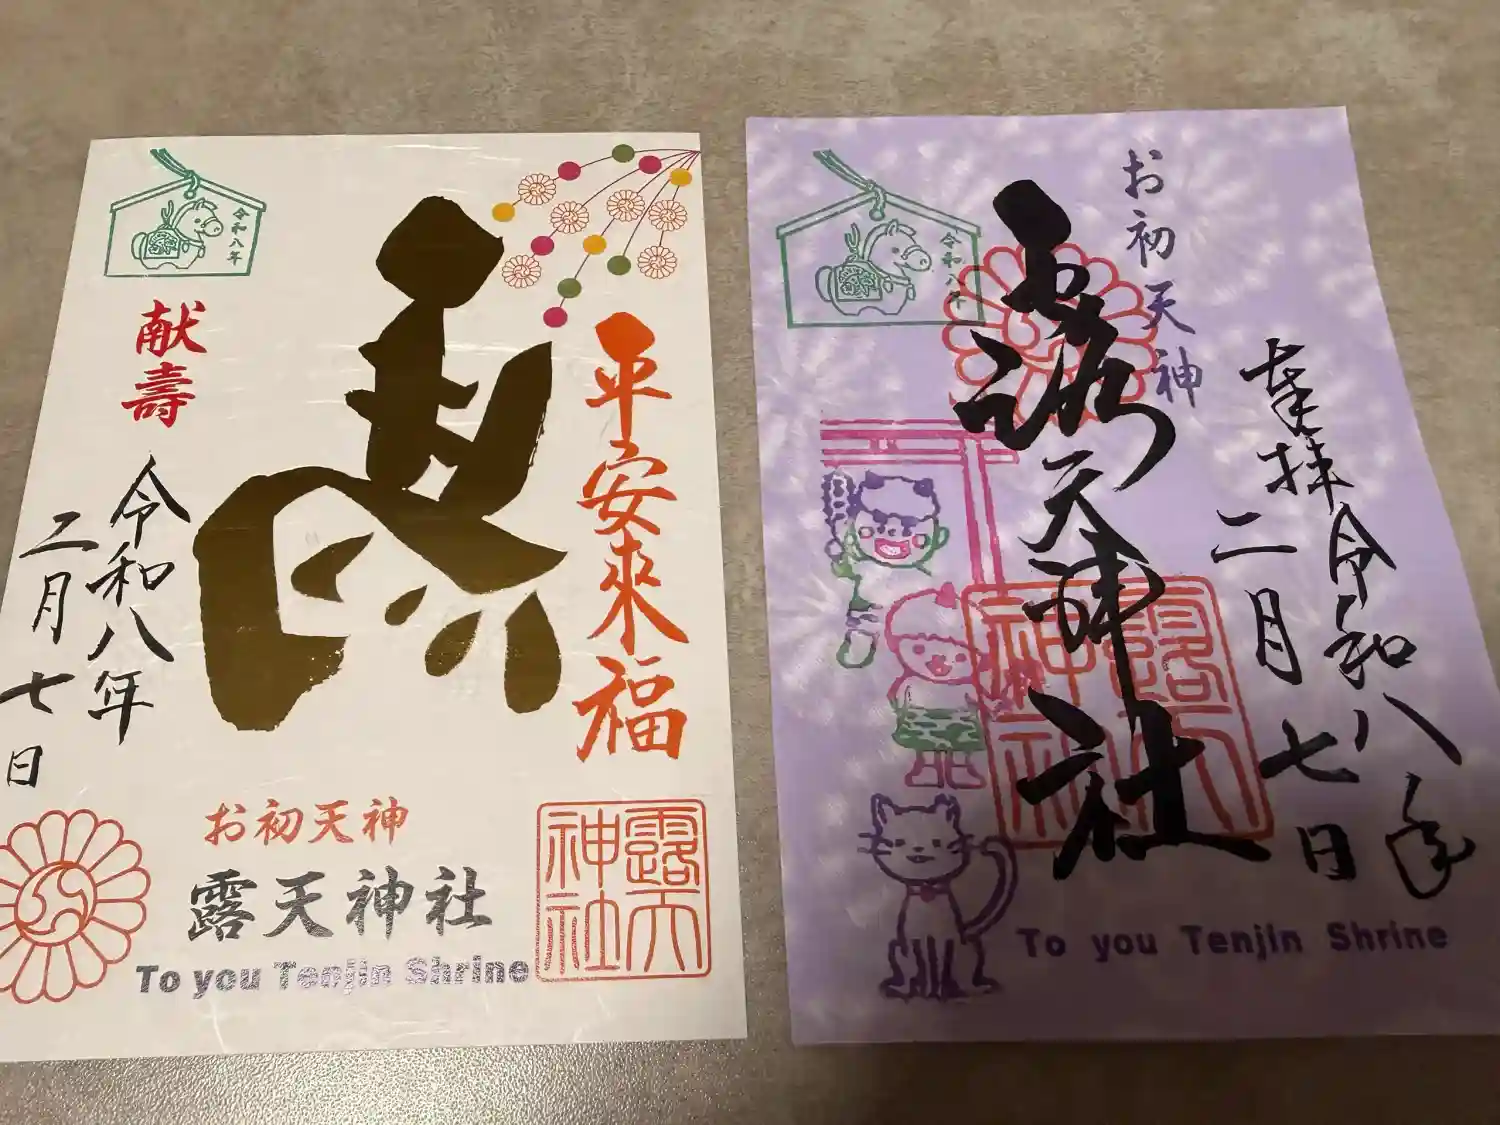 令和八年
献壽
平安來福
令和八年
二月七日
お初天神
露天神社
To you Tenjin Shrine
露天神社
令和八年
お初天神
奉拝
露天神社
令和八年
二月七日
露天神社
To you Tenjin Shrine